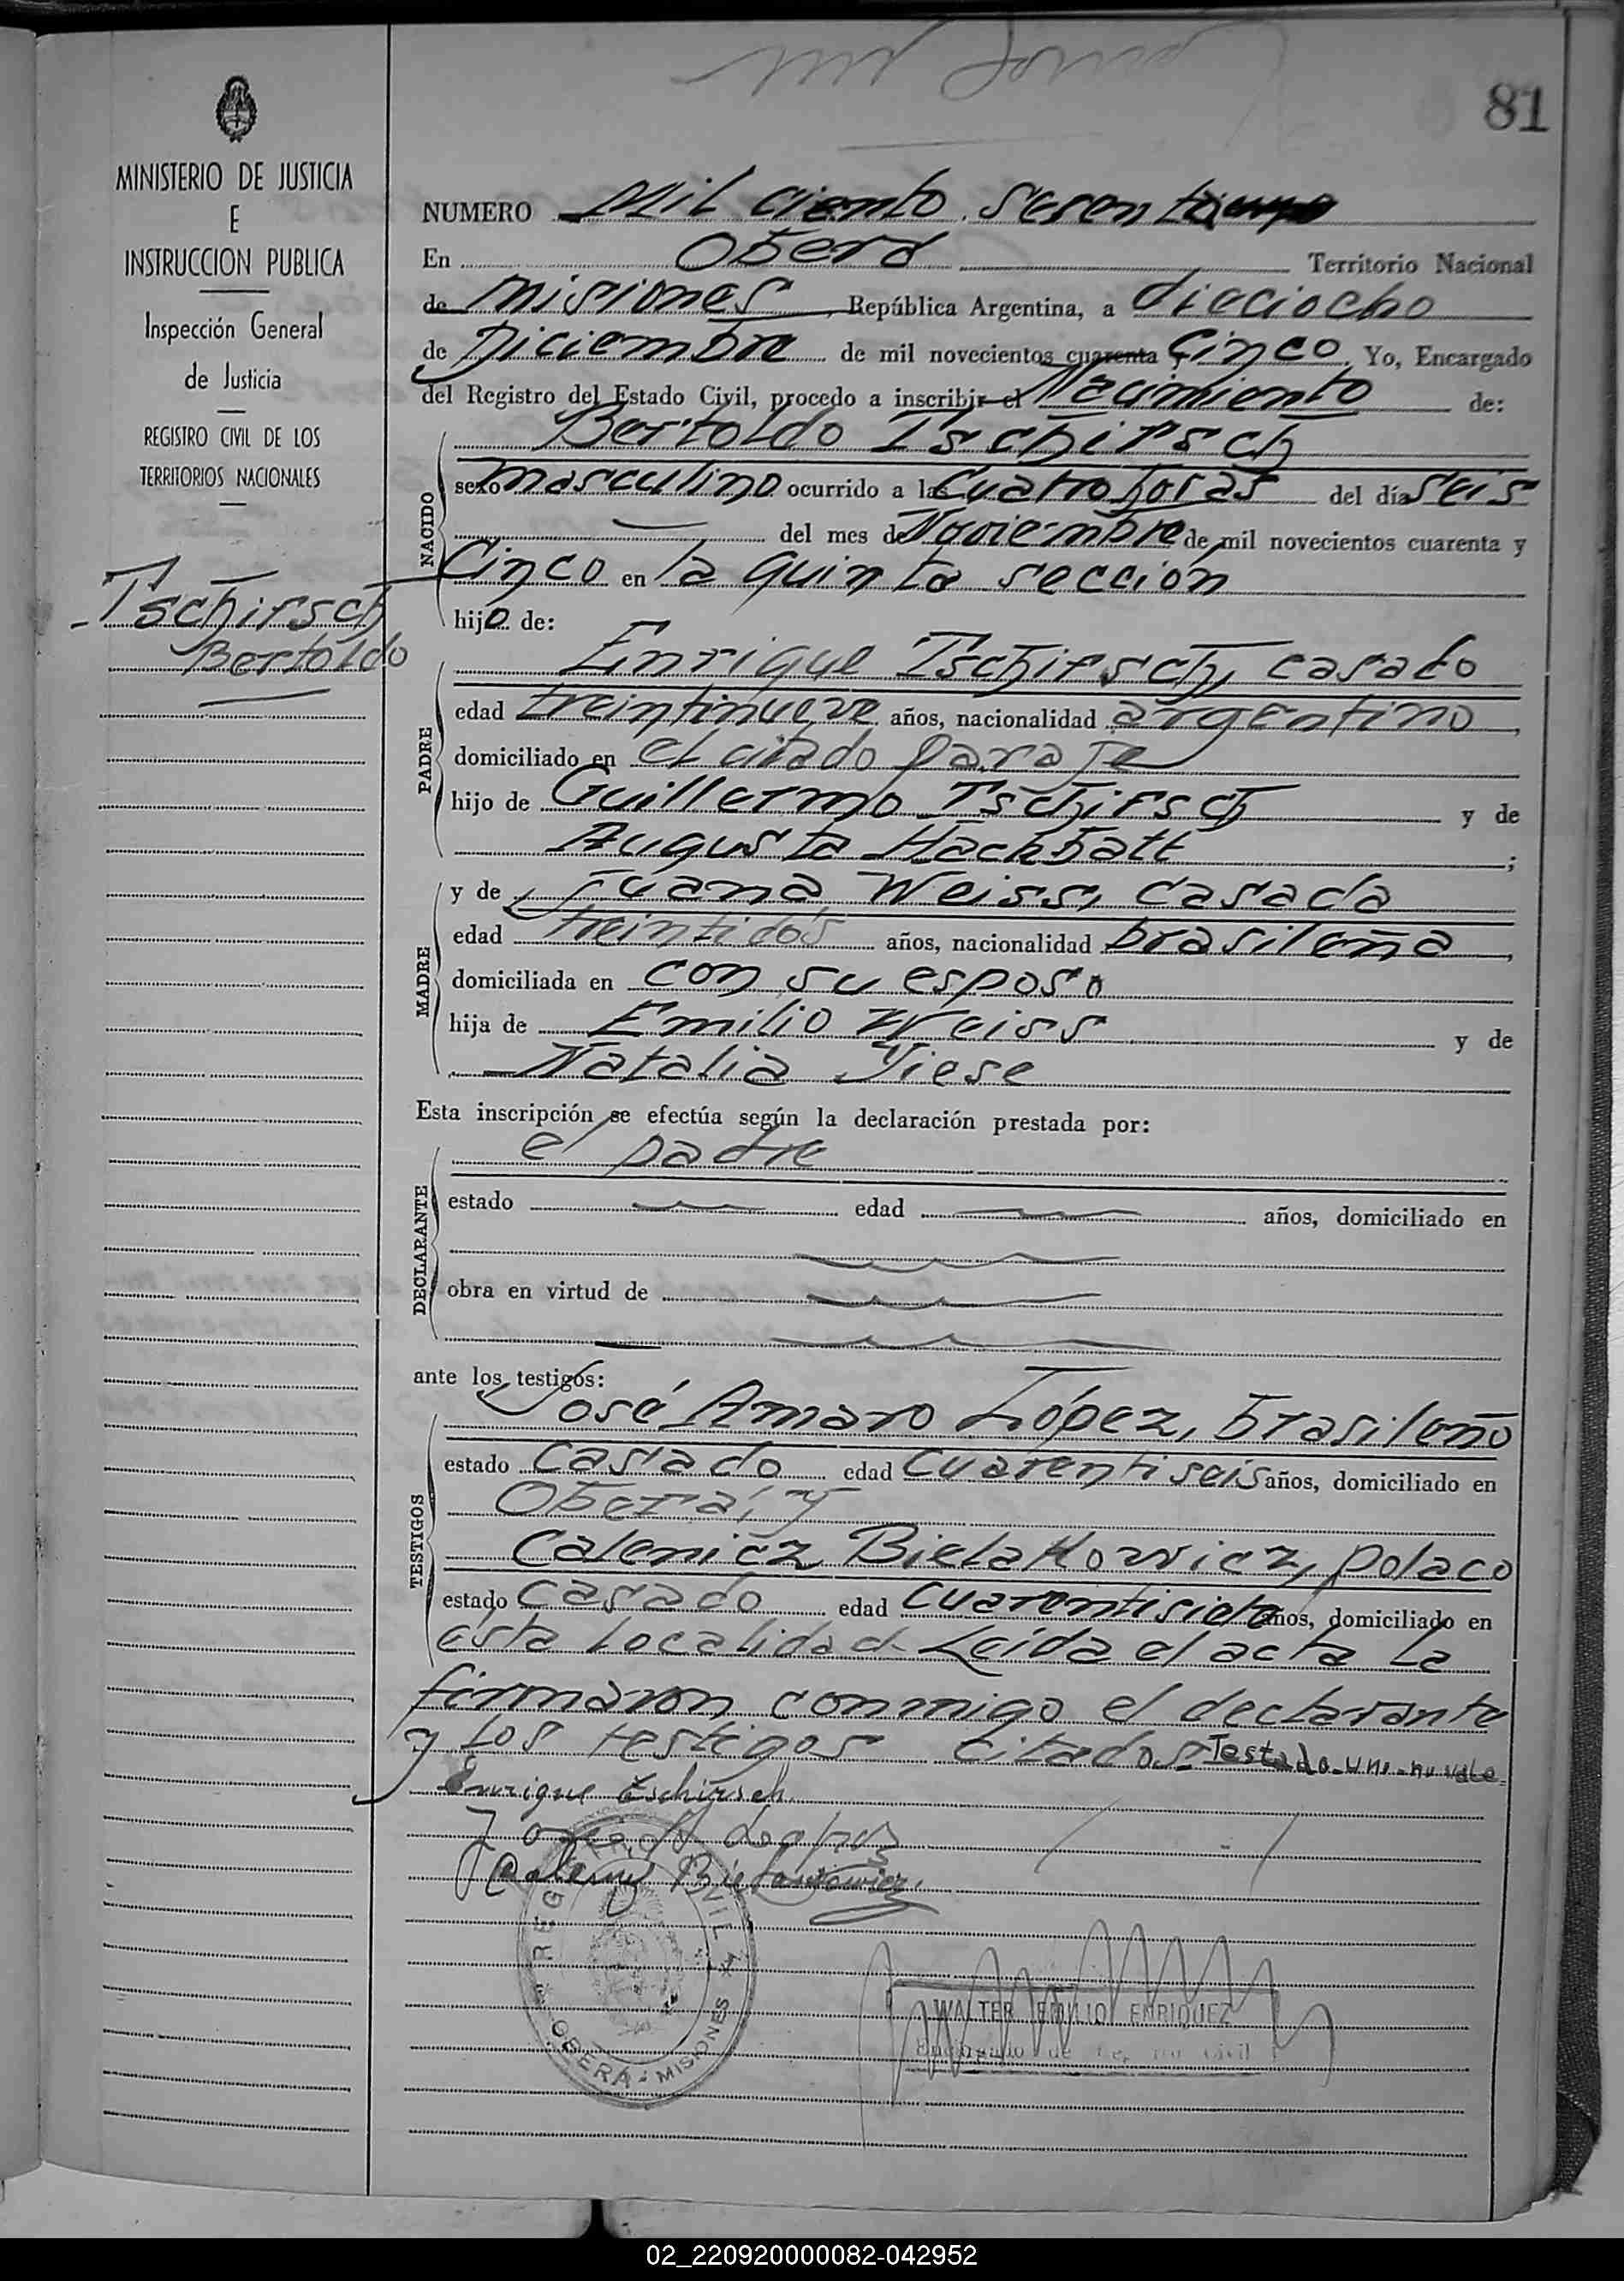 81
MINISTERIO DE JUSTICIA
E
INSTRUCCION PUBLICA
Inspección General
de Justicia
REGISTRO CIVIL DE LOS
TERRITORIOS NACIONALES
Tschirsch
Bertoldo
NUMERO Mil ciento sesenta
En Oberá Territorio Nacional
de Misiones, República Argentina, a dieciocho
de Diciembre de mil novecientos cuarenta y Cinco, Yo, Encargado
del Registro del Estado Civil, procedo a inscribir el Nacimiento de:
NACIDO
Bertoldo Tschirsch
sexo masculino ocurrido a las Cuatro horas del día seis
del mes de Noviembre de mil novecientos cuarenta y
Cinco en la quinta sección
hijo de:
PADRE
Enrique Tschirsch, casado
edad treintinueve años, nacionalidad argentino,
domiciliado en el citado paraje
hijo de Guillermo Tschirsch y de
Augusta Hachbatt;
MADRE
y de Juana Weiss, casada
edad treintidós años, nacionalidad brasileña,
domiciliada en con su esposo
hija de Emilio Weiss y de
Natalia Viese
Esta inscripción se efectúa según la declaración prestada por:
DECLARANTE
el padre
estado edad años, domiciliado en
obra en virtud de
ante los testigos:
TESTIGOS
José Amaro López, brasileño
estado casado edad Cuarentiseis años, domiciliado en
Oberá, y
Calenicz Bielakowicz, polaco
estado casado edad cuarentisiete años, domiciliado en
ésta localidad - Leída el acta la
firmaron conmigo el declarante
y los testigos citados - Testado - uno - no vale -
Enrique Tschirsch
REGISTRO CIVIL
OBERÁ - MISIONES
WALTER EMILIO ENRIQUEZ
Encargado de Registro Civil
02_220920000082-042952